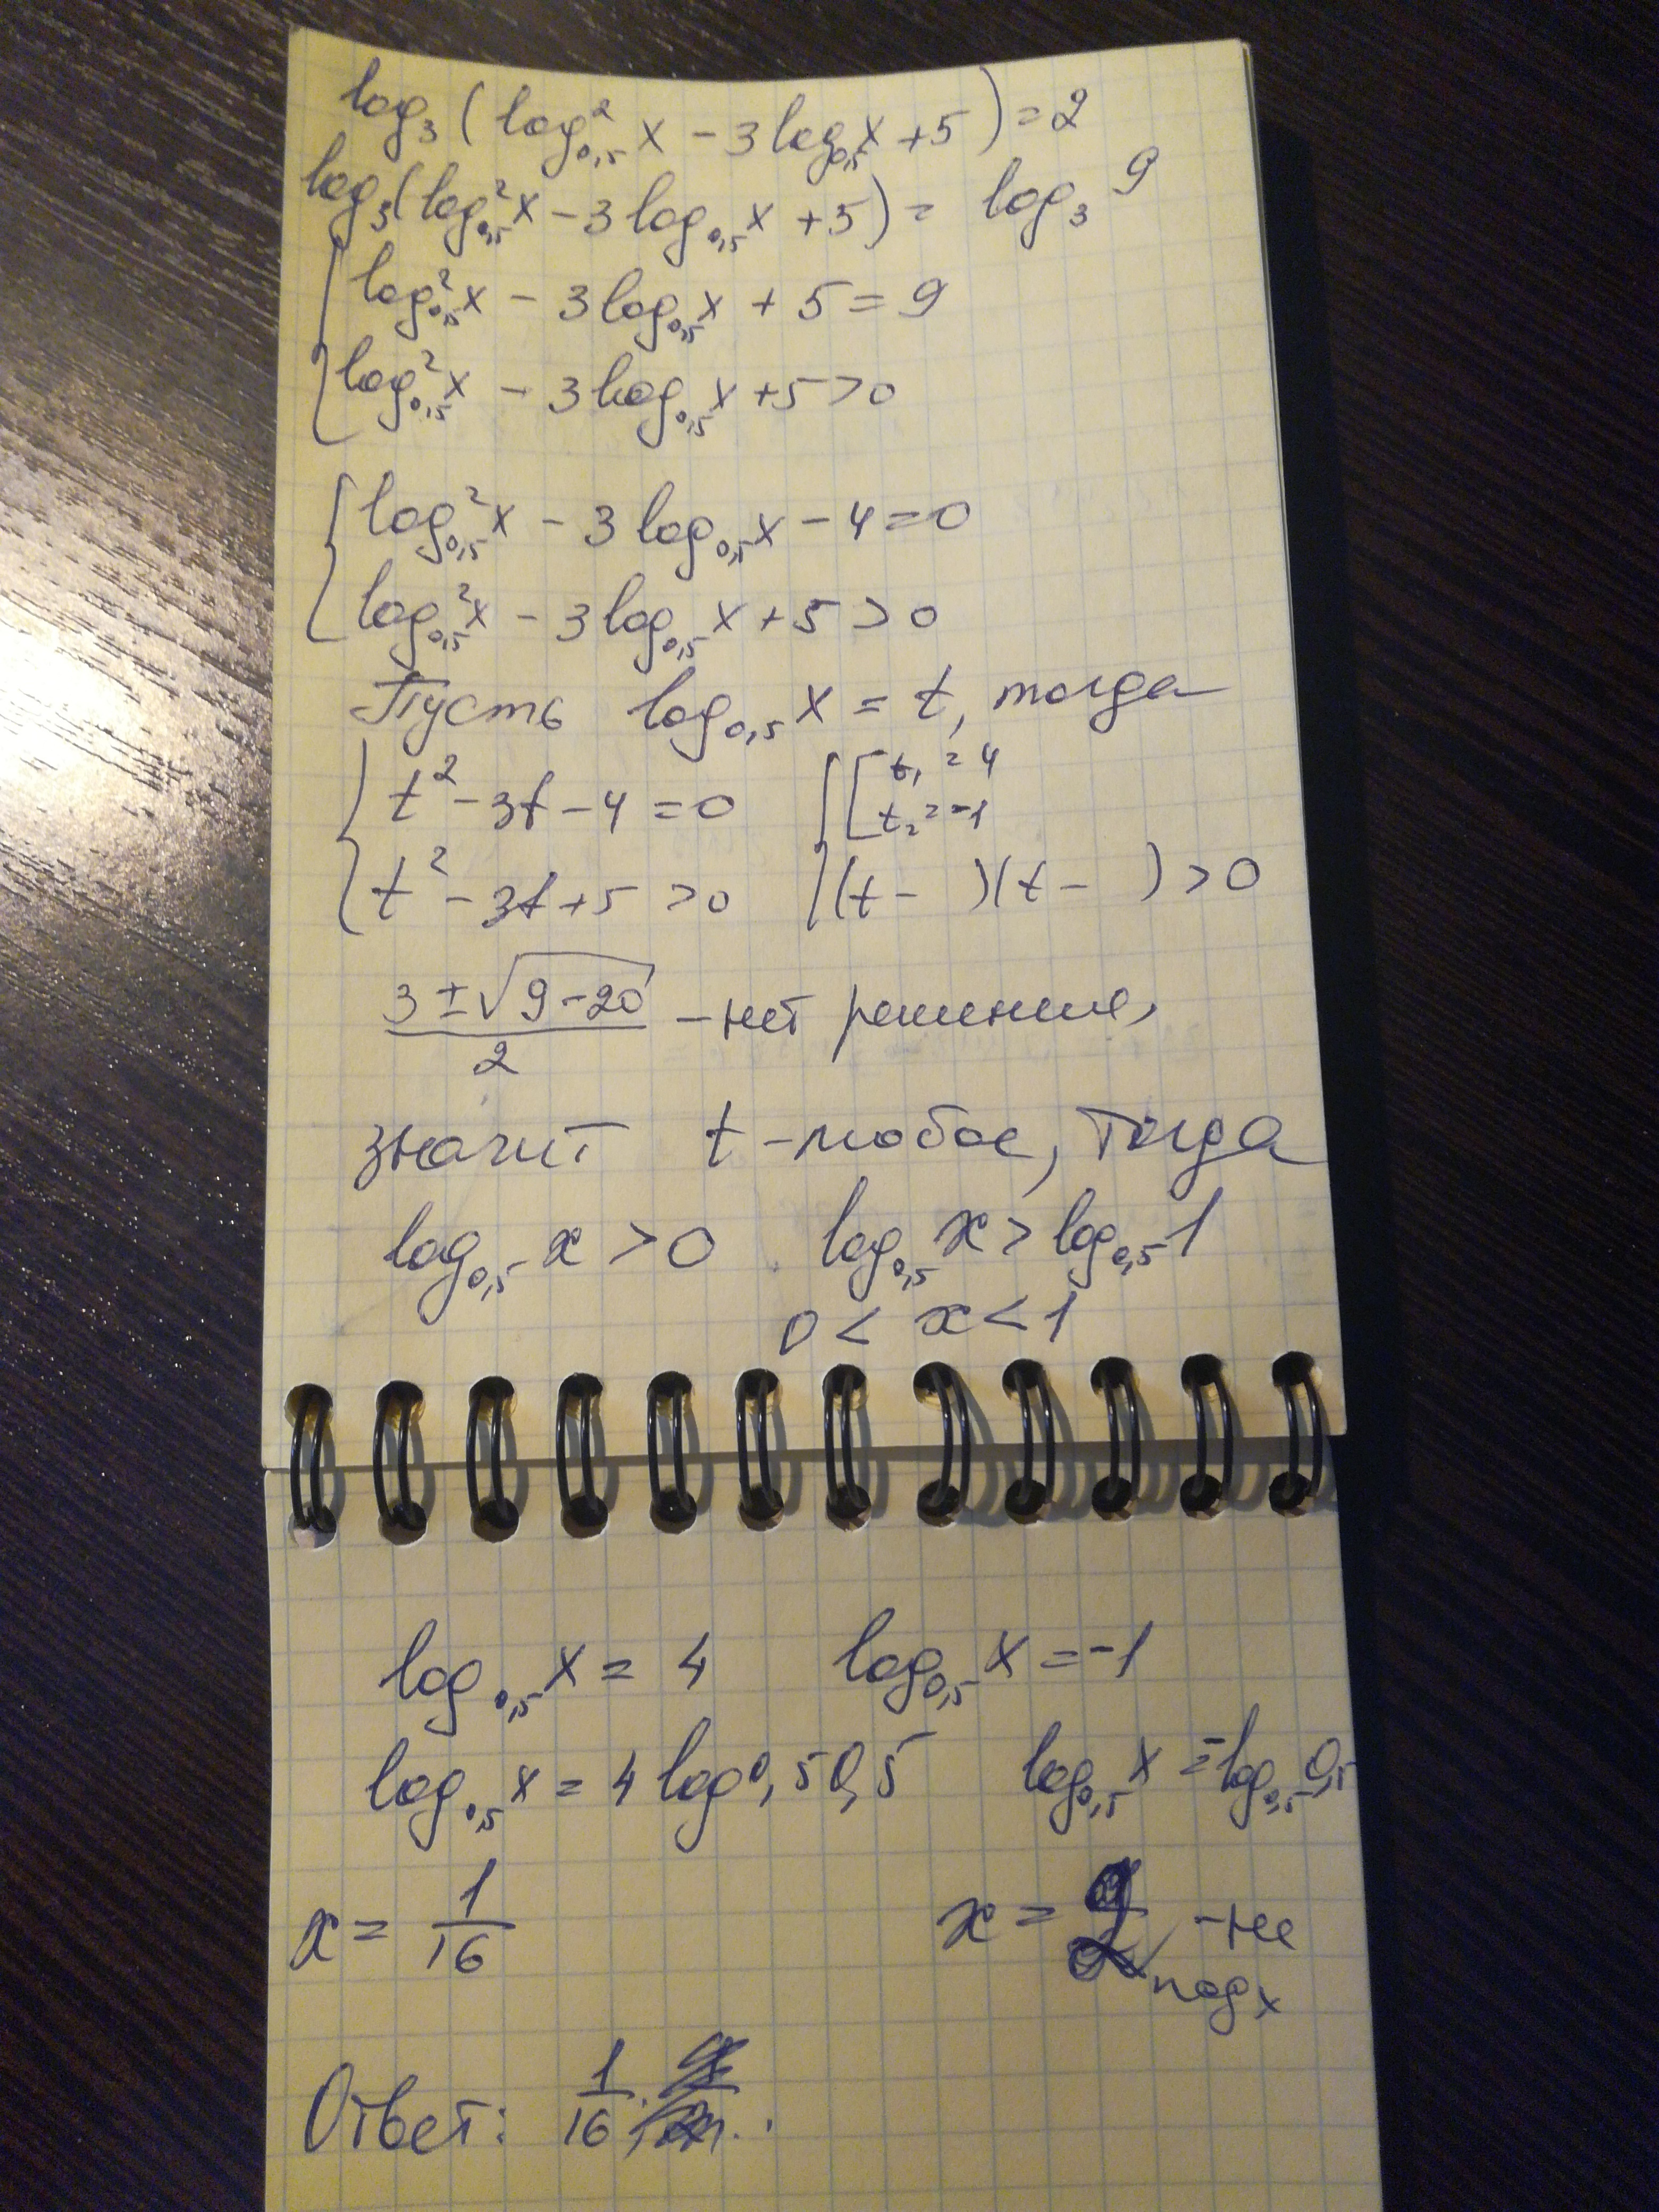 log₃(log²₀,₅ x − 3log₀,₅ x + 5) = 2
log₃(log²₀,₅ x − 3log₀,₅ x + 5) = log₃ 9
{ log²₀,₅ x − 3log₀,₅ x + 5 = 9
log²₀,₅ x − 3log₀,₅ x + 5 > 0
{ log²₀,₅ x − 3log₀,₅ x − 4 = 0
log²₀,₅ x − 3log₀,₅ x + 5 > 0
Пусть log₀,₅ x = t, тогда
{ t² − 3t − 4 = 0 { [ t₁ = 4
t₂ = −1
t² − 3t + 5 > 0 (t − )(t − ) > 0
(3 ± √(9 − 20))/2 − нет решения,
значит t − любое, тогда
log₀,₅ x > 0 . log₀,₅ x > log₀,₅ 1
0 < x < 1
log₀,₅ x = 4 log₀,₅ x = −1
log₀,₅ x = 4 log0,5 0,5 log₀,₅ x = −log₀,₅ 0,5
x = 1/16 x = 2 − не
подх
Ответ: 1/16.